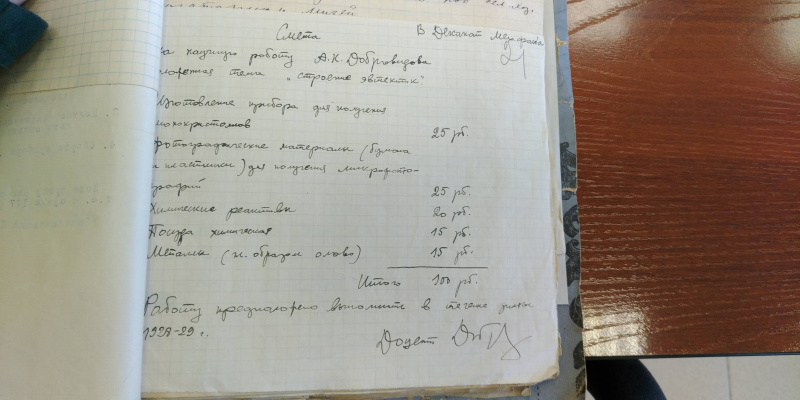 Смета В Деканат Мехфака
на научную работу А.К. Добровидова
темы „строение эвтектик"
Изготовление прибора для получения
монокристаллов 25 рб.
Фотографические материалы (бумага
и пластинки) для получения микрофото-
графий 25 рб.
Химические реактивы 20 рб.
Посуда химическая 15 рб.
Металлы (гл. образом олово) 15 рб.
Итого 100 рб.
Работу предположено выполнить в течение зимы
1928-29 г.
Доцент